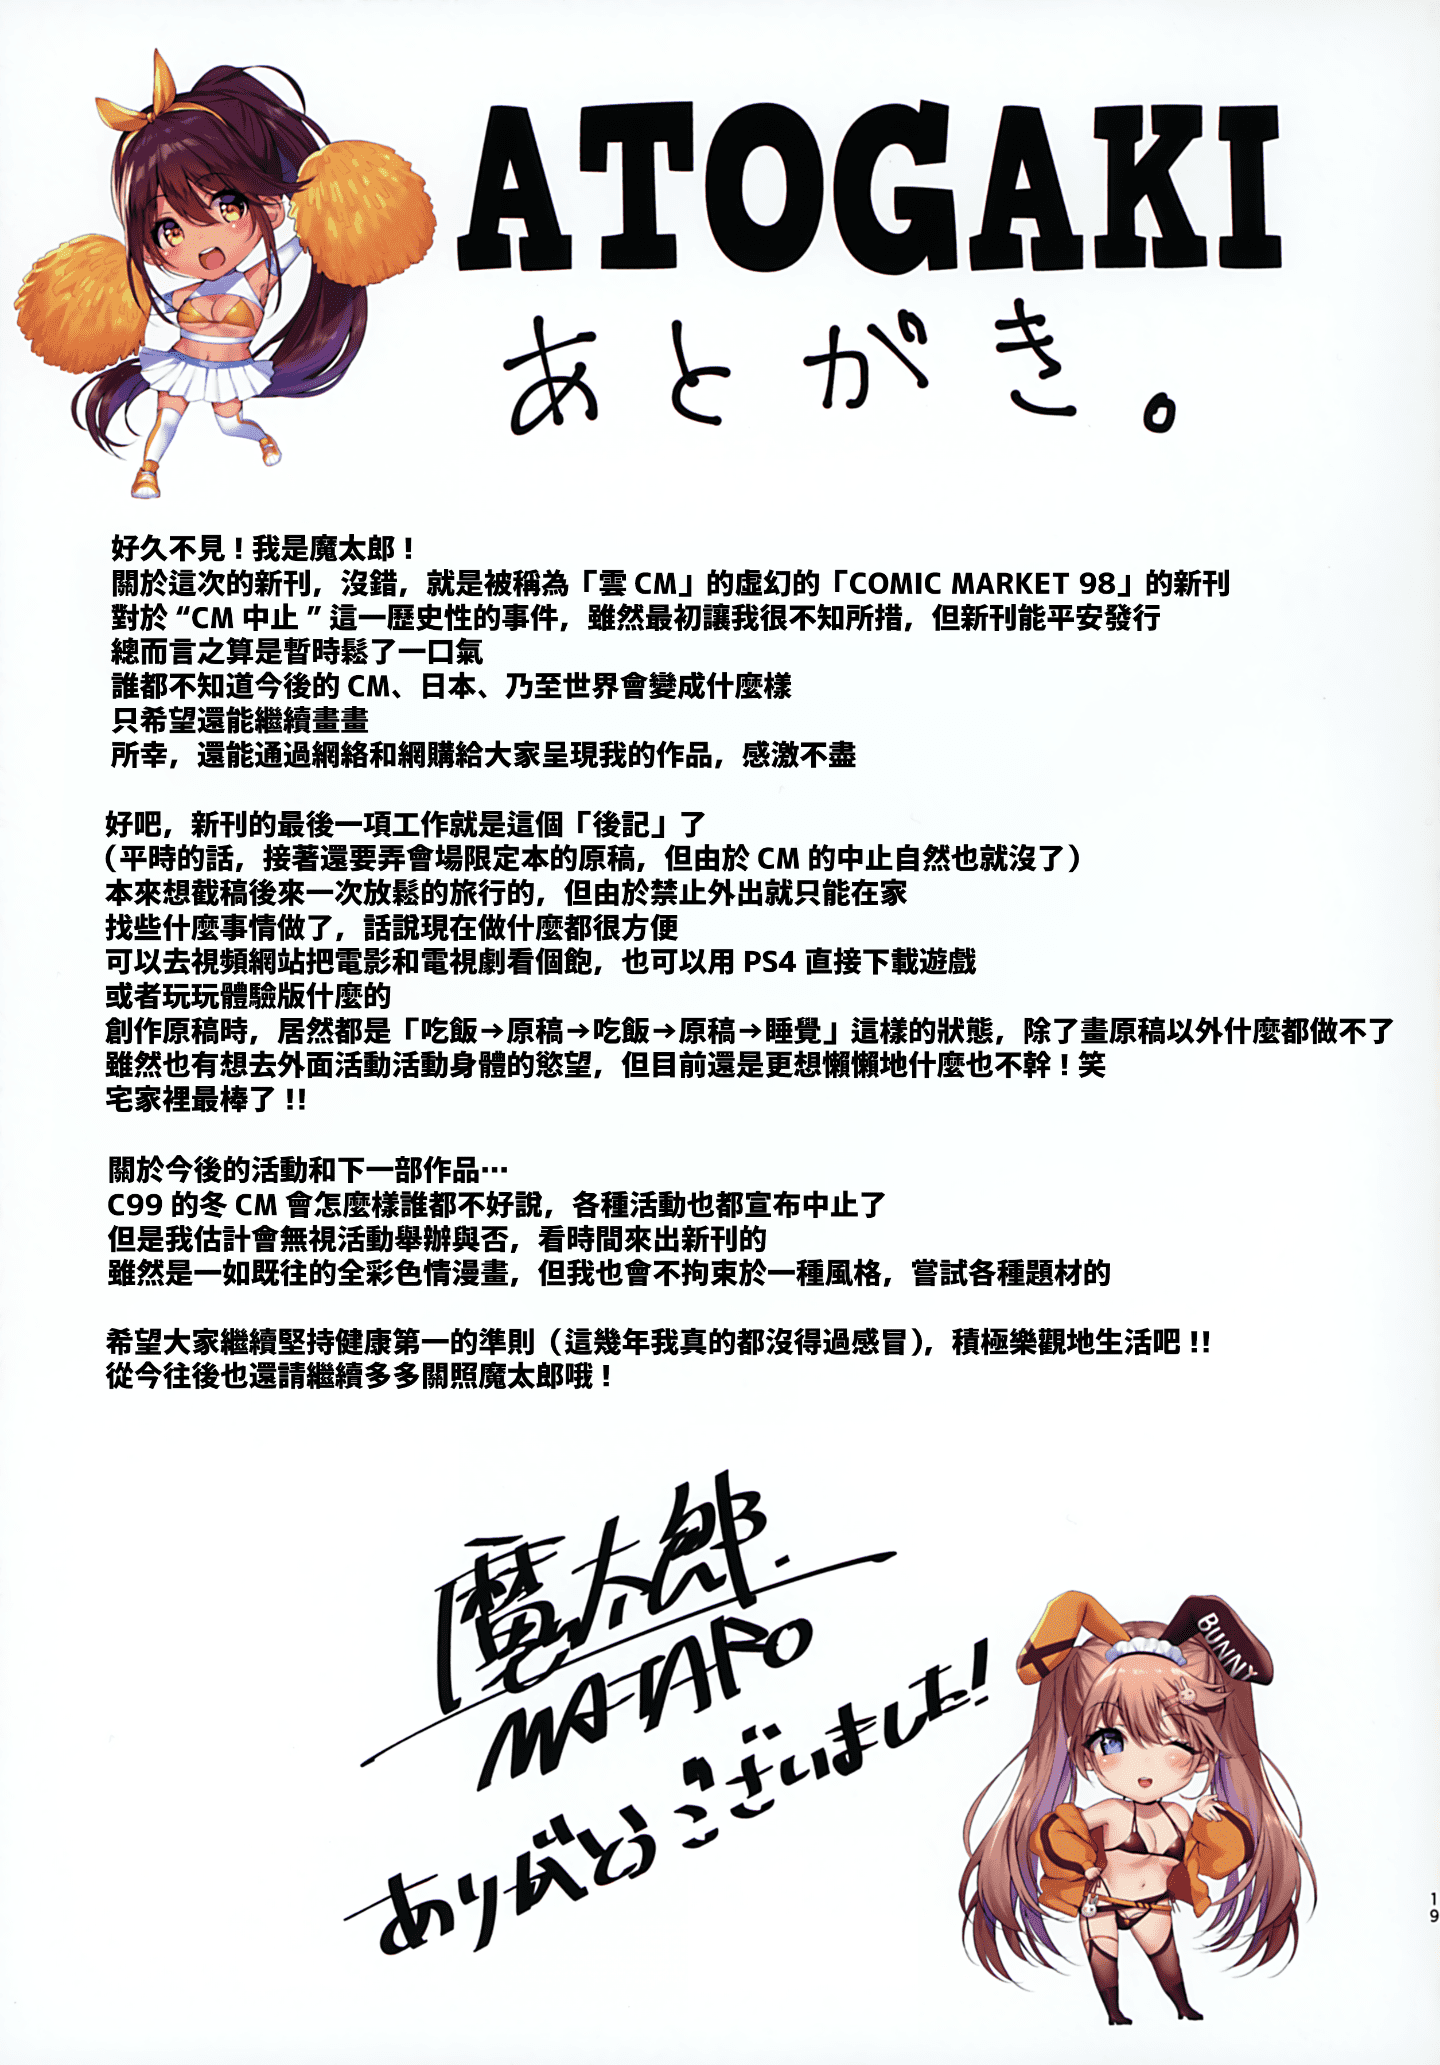 ATOGAKI
あとがき。
好久不見！我是魔太郎！
關於這次的新刊，沒錯，就是被稱為「雲 CM」的虛幻的「COMIC MARKET 98」的新刊
對於 “CM 中止 ” 這一歷史性的事件，雖然最初讓我很不知所措，但新刊能平安發行
總而言之算是暫時鬆了一口氣
誰都不知道今後的 CM、日本、乃至世界會變成什麼樣
只希望還能繼續畫畫
所幸，還能通過網絡和網購給大家呈現我的作品，感激不盡
好吧，新刊的最後一項工作就是這個「後記」了
（平時的話，接著還要弄會場限定本的原稿，但由於 CM 的中止自然也就沒了）
本來想截稿後來一次放鬆的旅行的，但由於禁止外出就只能在家
找些什麼事情做了，話說現在做什麼都很方便
可以去視頻網站把電影和電視劇看個飽，也可以用 PS4 直接下載遊戲
或者玩玩體驗版什麼的
創作原稿時，居然都是「吃飯→原稿→吃飯→原稿→睡覺」這樣的狀態，除了畫原稿以外什麼都做不了
雖然也有想去外面活動活動身體的慾望，但目前還是更想懶懶地什麼也不幹！笑
宅家裡最棒了 !!
關於今後的活動和下一部作品…
C99 的冬 CM 會怎麼樣誰都不好說，各種活動也都宣布中止了
但是我估計會無視活動舉辦與否，看時間來出新刊的
雖然是一如既往的全彩色情漫畫，但我也會不拘束於一種風格，嘗試各種題材的
希望大家繼續堅持健康第一的準則（這幾年我真的都沒得過感冒），積極樂觀地生活吧 !!
從今往後也還請繼續多多關照魔太郎哦！
魔太郎.
MATARO
ありがとうございました!
BUNNY
19